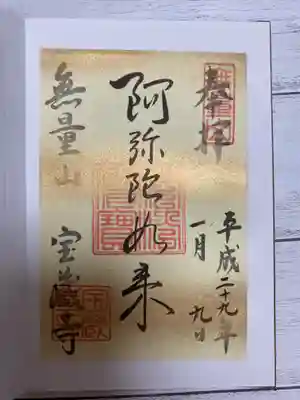 奉拝
平成二十九年
一月九日
阿弥陀如来
無量山
宝蔵寺